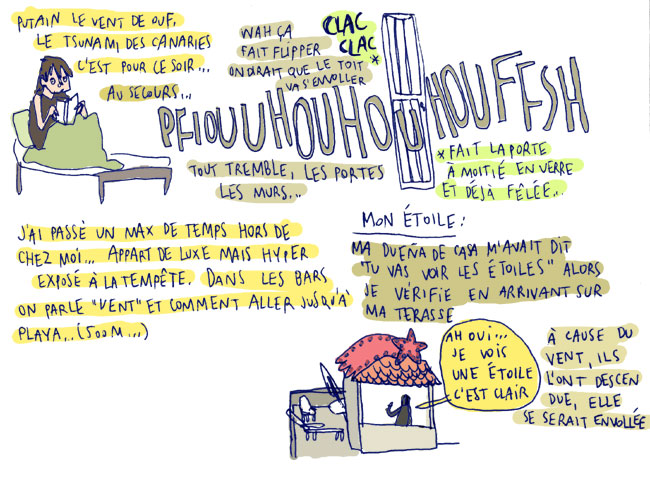 PUTAIN LE VENT DE OUF.
LE TSUNAMI DES CANARIES
C'EST POUR CE SOIR...
AU SECOURS...
WAH ÇA
FAIT FLIPPER
ON DIRAIT QUE LE TOIT
VA S'ENVOLLER
CLAC
CLAC
*
PFIOUUHOUHOUHOUFFSH
TOUT TREMBLE, LES PORTES
LES MURS...
*FAIT LA PORTE
À MOITIÉ EN VERRE
ET DÉJÀ FÊLÉE...
J'AI PASSÉ UN MAX DE TEMPS HORS DE
CHEZ MOI... APPART DE LUXE MAIS HYPER
EXPOSÉ À LA TEMPÊTE. DANS LES BARS
ON PARLE "VENT" ET COMMENT ALLER JUSQU'À
PLAYA... (500M...)
MON ÉTOILE:
MA DUEÑA DE CASA M'AVAIT DIT
"TU VAS VOIR LES ÉTOILES" ALORS
JE VÉRIFIE EN ARRIVANT SUR
MA TERASSE
AH OUI...
JE VOIS
UNE ÉTOILE
C'EST CLAIR
À CAUSE DU
VENT, ILS
L'ONT DESCEN
DUE, ELLE
SE SERAIT ENVOLLÉE